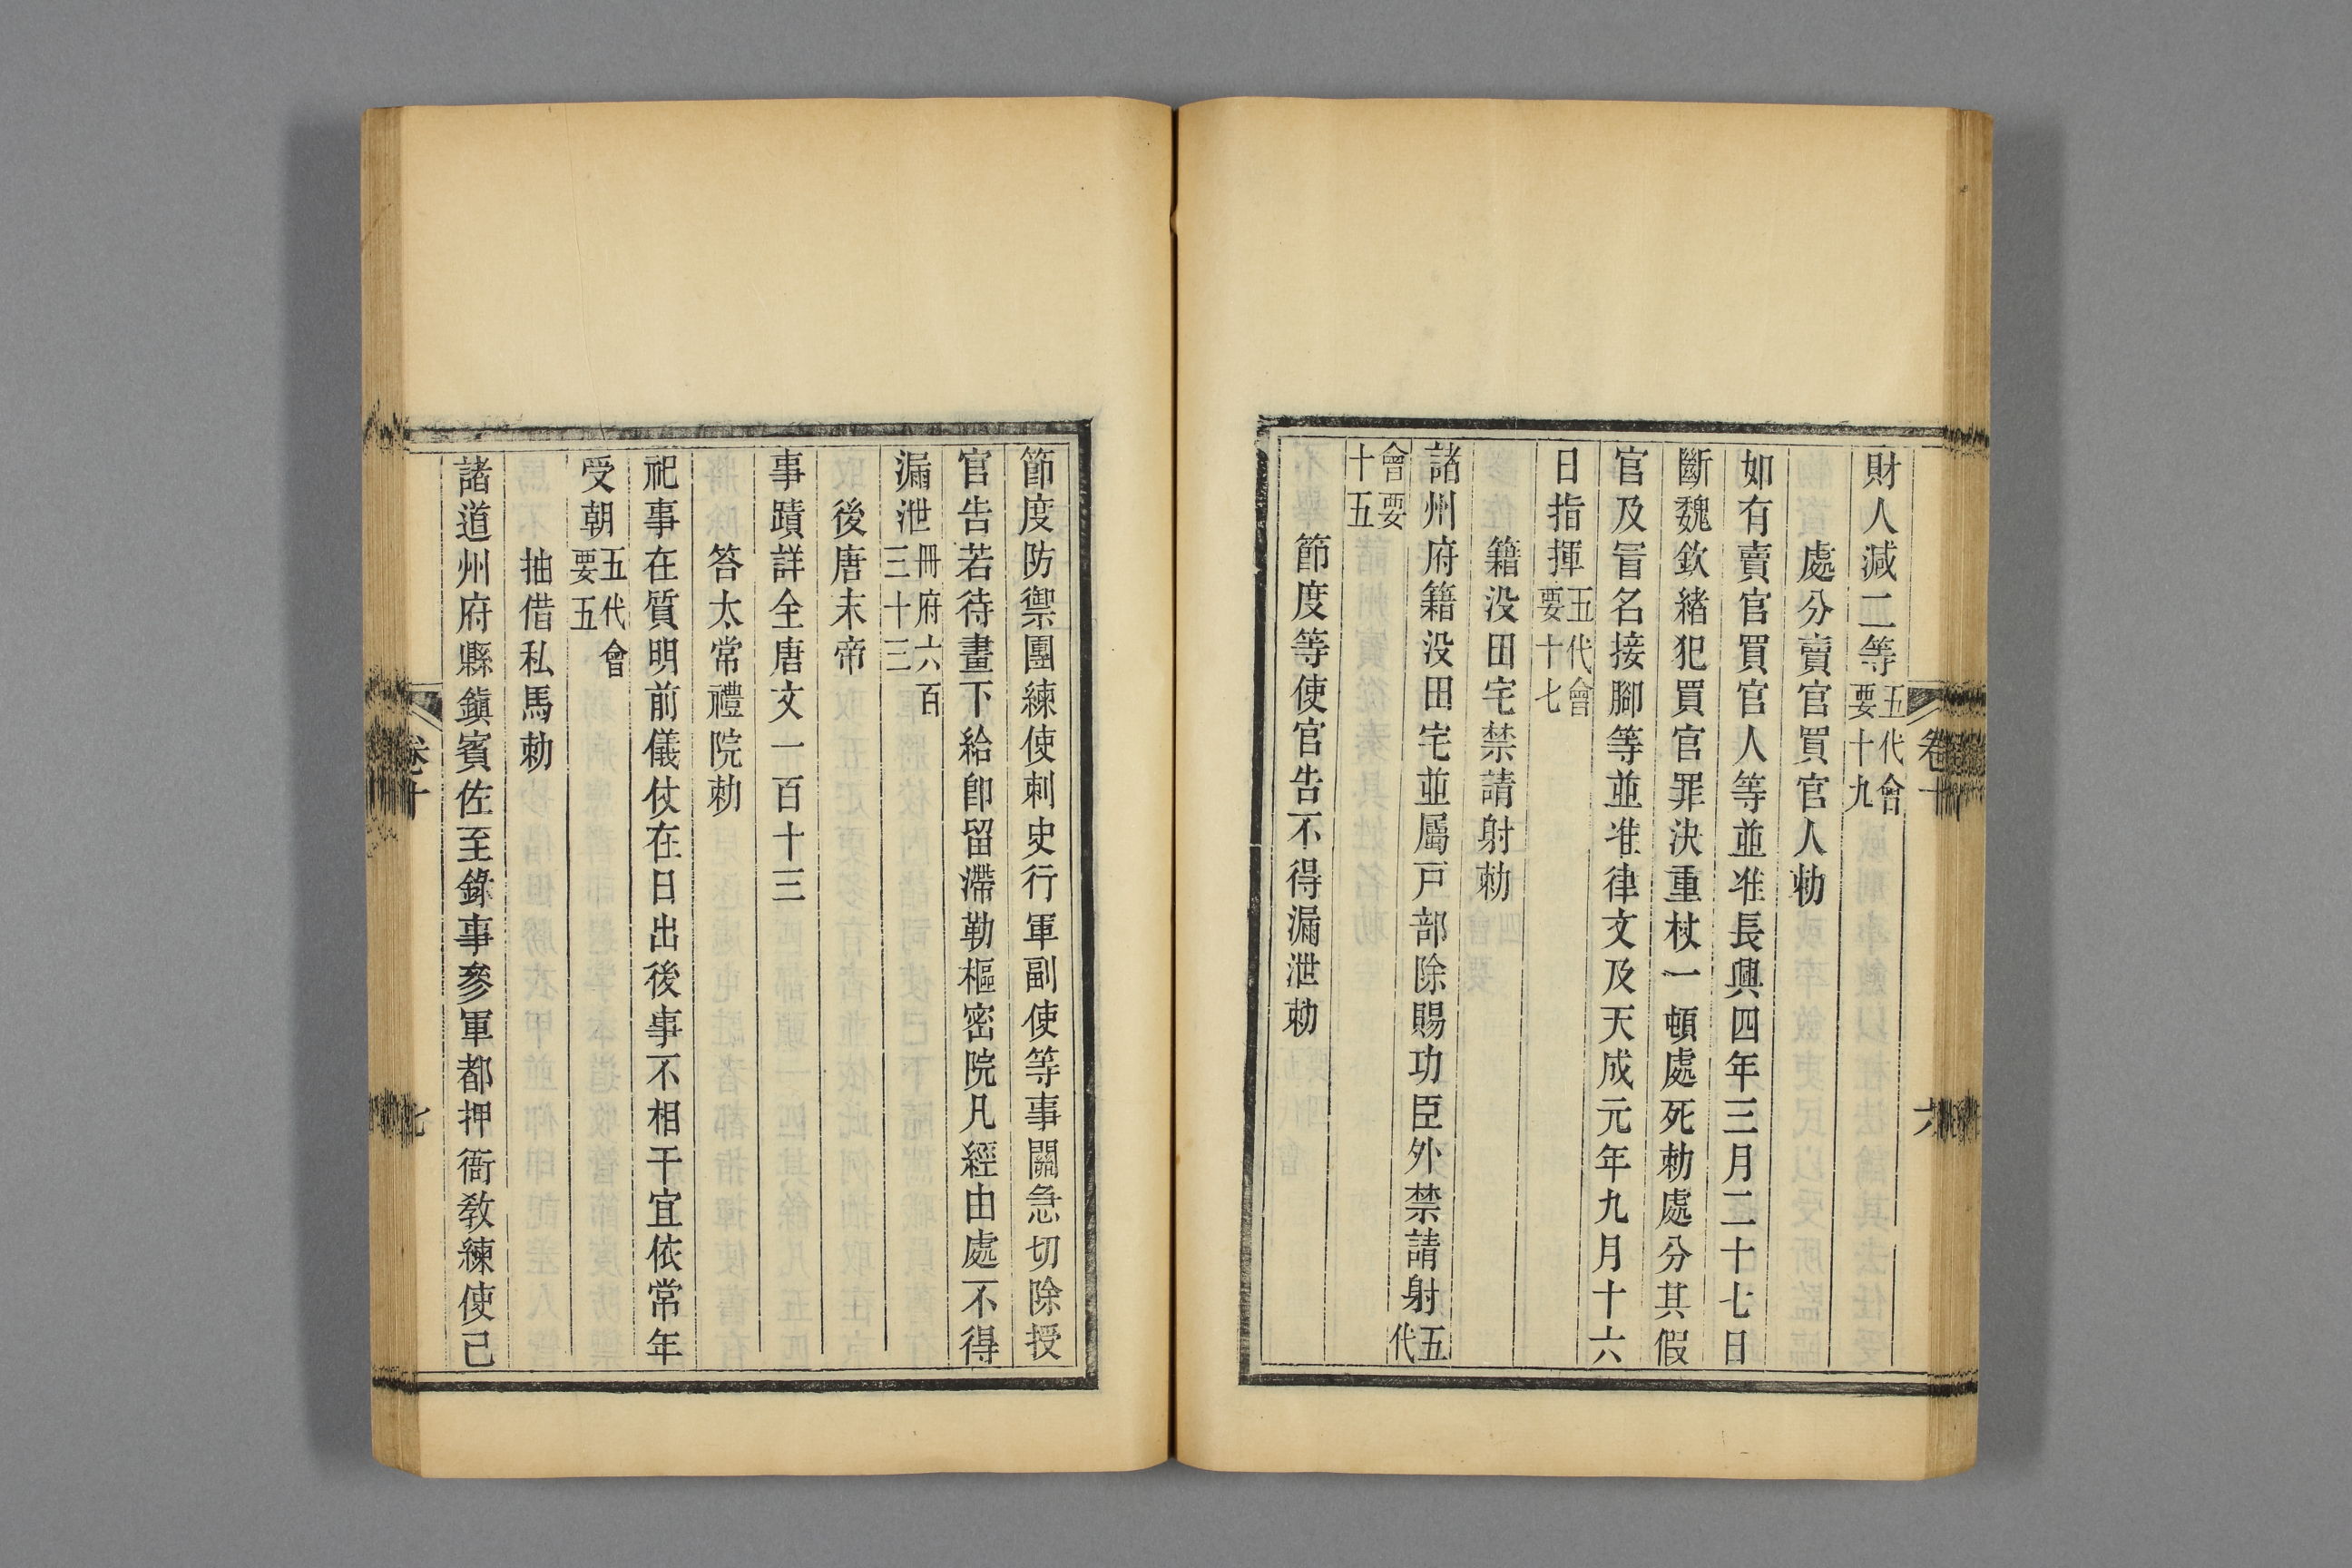 財人減二等五代會要十九
處分賣官買官人勅
如有賣官買官人等並准長興四年三月二十七日
斷魏欽緒犯買官罪決重杖一頓處死勅處分其假
官及冒名接腳等並准律文及天成元年九月十六
日指揮五代會要十七
籍没田宅禁請射勅
諸州府籍没田宅並屬戸部除賜功臣外禁請射五代
會要十五
節度等使官告不得漏泄勅
卷十
六
節度防禦團練使刺史行軍副使等事關急切除授
官告若待畫下給卽留滯勒樞密院凡經由處不得
漏泄冊府六百三十三
後唐末帝
事蹟詳全唐文一百十三
答太常禮院勅
祀事在質明前儀仗在日出後事不相干宜依常年
受朝五代會要五
抽借私馬勅
諸道州府縣鎭賓佐至錄事參軍都押衙敎練使已
卷十
七